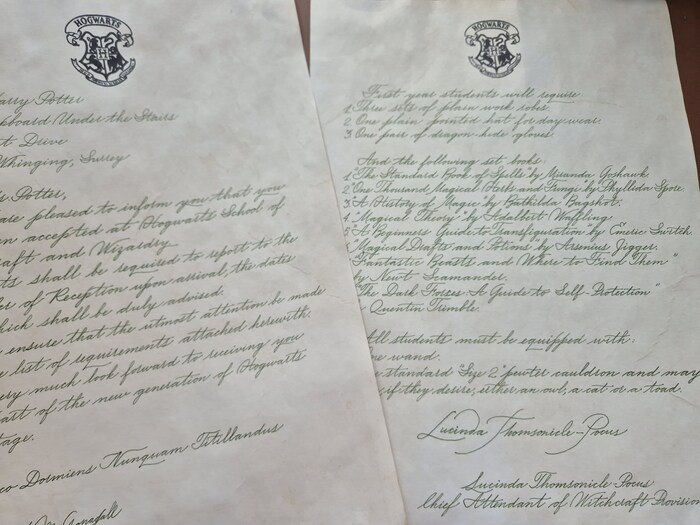 HOGWARTS
arry Potter
pboard Under the Stairs
t Drive
Whinging, Surrey
Potter,
are pleased to inform you that you
n accepted at Hogwarts School of
aft and Wizardry.
ts shall be required to report to the
er of Reception upon arrival, the dates
hich shall be duly advised.
ensure that the utmost attention be made
e list of requirements attached herewith.
ery much look forward to receiving you
art of the new generation of Hogwarts
tage.
co Dormiens Nunquam Titillandus
McGonagall
HOGWARTS
First year students will require
1. Three sets of plain work robes.
2. One plain pointed hat for day wear.
3. One pair of dragon-hide gloves.
And the following set books:
1. "The Standard Book of Spells" by Miranda Goshawk.
2. "One Thousand Magical Herbs and Fungi" by Phyllida Spore.
3. "A History of Magic" by Bathilda Bagshot.
4. "Magical Theory" by Adalbert Waffling.
5. "A Beginners Guide to Transfiguration" by Emeric Switch.
"Magical Drafts and Potions" by Arsenius Jigger.
"Fantastic Beasts and Where to Find Them"
by Newt Scamander.
"The Dark Forces: A Guide to Self-Protection"
Quentin Trimble.
All students must be equipped with:
ne wand.
e standard Size 2 pewter cauldron and may
, if they desire, either an owl, a cat or a toad.
Lucinda Thomsonicle-Pocus
Lucinda Thomsonicle-Pocus
Chief Attendant of Witchcraft Provision